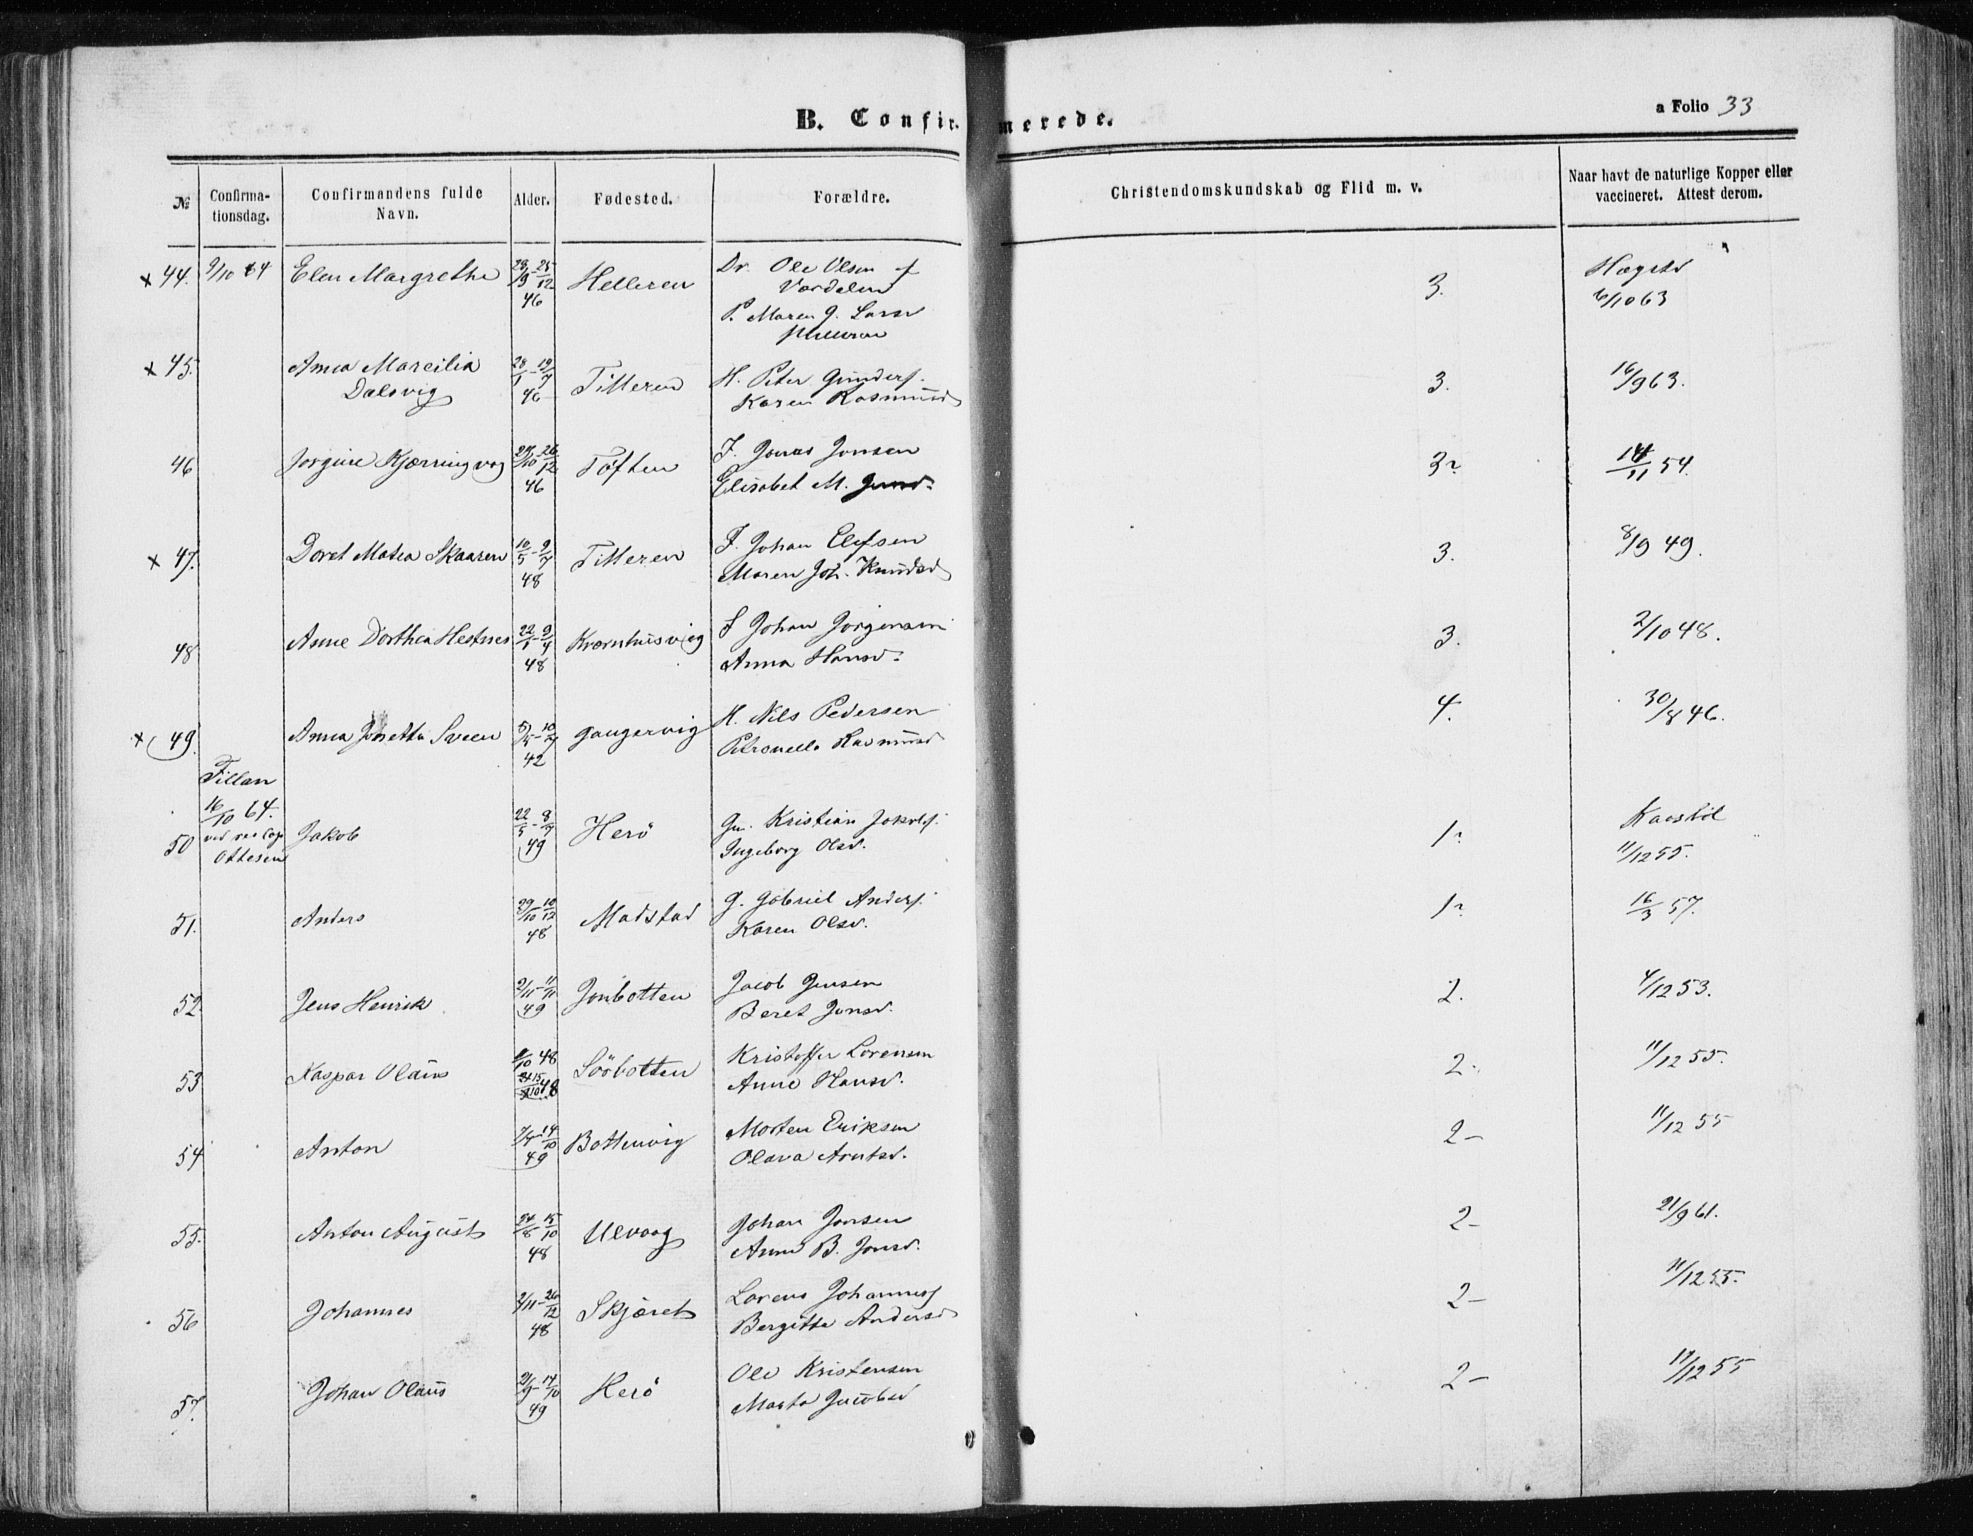 B. Confirmerede.
a Folio 33
№
Confirmationsdag.
Confirmandens fulde Navn.
Alder.
Fødested.
Forældre.
Christendomskundskab og Flid m. v.
Naar havt de naturlige Kopper eller vaccineret. Attest derom.
x 44. 9/10 64 Elen Margrethe 28/9 - 25/12 46 Helleren Dr. Ole Olsen af 3.
Værdalen
P. Maren G. Larsd 6/10 63
x 45. Anna Marcilia 28/1 - 19/7 46 Titteren H. Peter Gunders. 3. 16/9 63.
Dalsvig Karen Rasmusd
46 Jorgine Kjærringvog 27/10 - 26/12 46 Toften F. Jonas Jonsen 3. 14/11 54.
Elisabet M.
x 47. Doret Matea Skaaren 10/5 - 9/7 48 Titteren F. Johan Elefsen 3. 8/9 49.
Maren Joh. Knudsd
48 Anne Dorthea Hestnes 22/1 - 9/4 48 Kværnhusvieg F Johan Jørgensen 3. 2/10 48.
Anna Hansd.
x 49. Anna Josetta Sveen 5/5 - 10/7 42 Gaugervig H. Nils Pedersen 4. 30/8 46.
Petronelle Rasmusd
Fillan
16/10 64.
ved res Cap
Ottesen
50 Jakob 22/5 - 8/7 49 Herö Gm. Kristian Jakobs. 1. 11/12 55.
Ingeborg Olsd.
51. Anders 29/10 - 10/12 48 Madstad G. Gabriel Anders. 1. 16/3 57.
Karen Olsd.
52. Jens Henrik 2/11 - 11/11 49 Jonbotten Jacob Jensen 2. 4/12 53.
Beret Jonsd.
53 Kaspar Olaus 1/10 48 Sörbotten Kristoffer Lorensen 2. 11/12 55.
Anne Hansd.
54 Anton 7/4 - 14/10 49 Bottenvig Morten Eriksen 2 - 11/12 55
Olava Arntsd.
55. Anton August 24/8 - 15/10 48 Ulvaag Johan Jonsen 2 - 21/9 61.
Anne B. Jonsd.
56 Johannes 2/11 - 26/12 48 Skjæret Lorens Johannes 2 - 11/12 55.
Bergitte Andersd
57. Johan Olaus 21/9 - 14/10 49 Herö Ole Kristensen 2 - 11/12 55
Marta Jacobsd